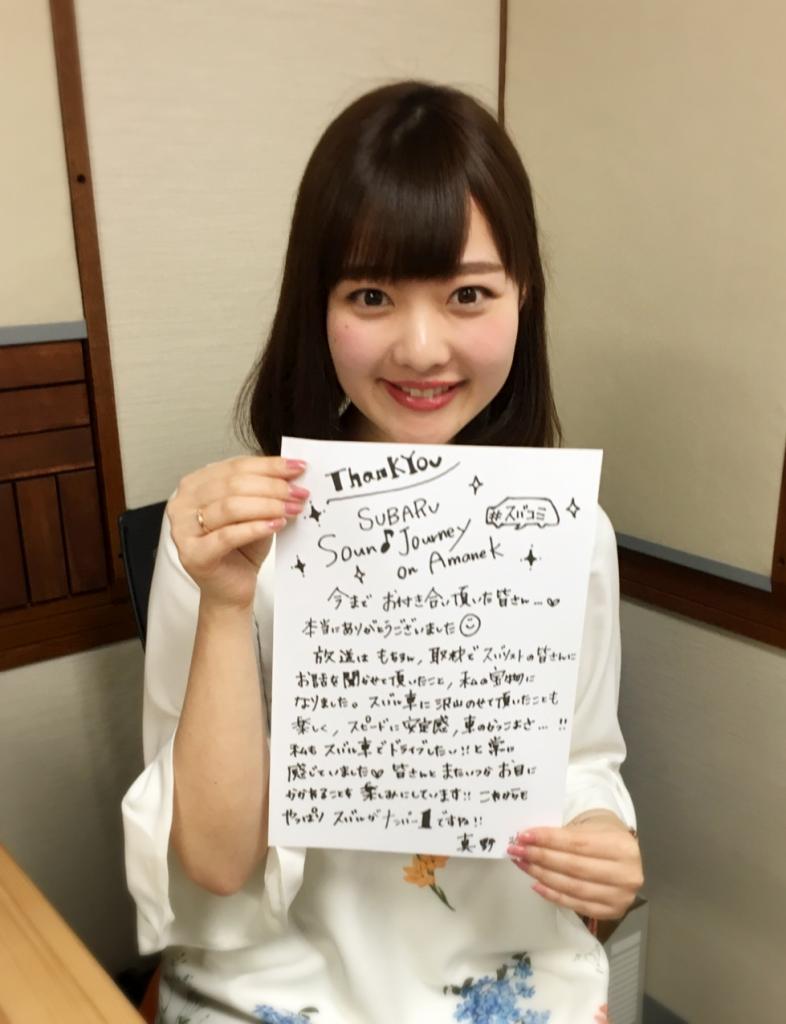 ThankYou
SUBARU
#スバコミ
Soun♪Journey
on Amanek
今まで お付き合い頂いた皆さん…♥
本当にありがとうございました☺
放送は もちろん, 取材で スバリストの皆さんに
お話を聞かせて頂いたこと, 私の宝物に
なりました。スバル車に沢山のせて頂いたことも
楽しく, スピードに安定感, 車のかっこよさ…!!
私も スバル車でドライブしたい!!と 常に
感じていました♥ 皆さんと またいつか お目に
かかれることを 楽しみにしています!! これからも
やっぱり スバルがナンバー1ですね!!
真野